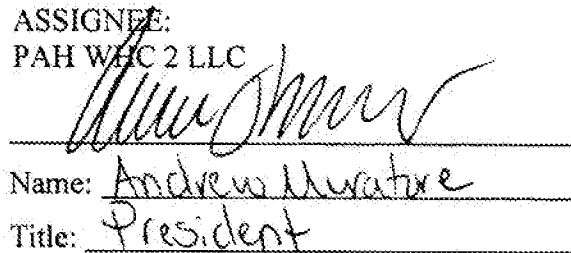 ASSIGNEE:
PAH WHC 2 LLC
Name: Andrew Muratore
Title: President